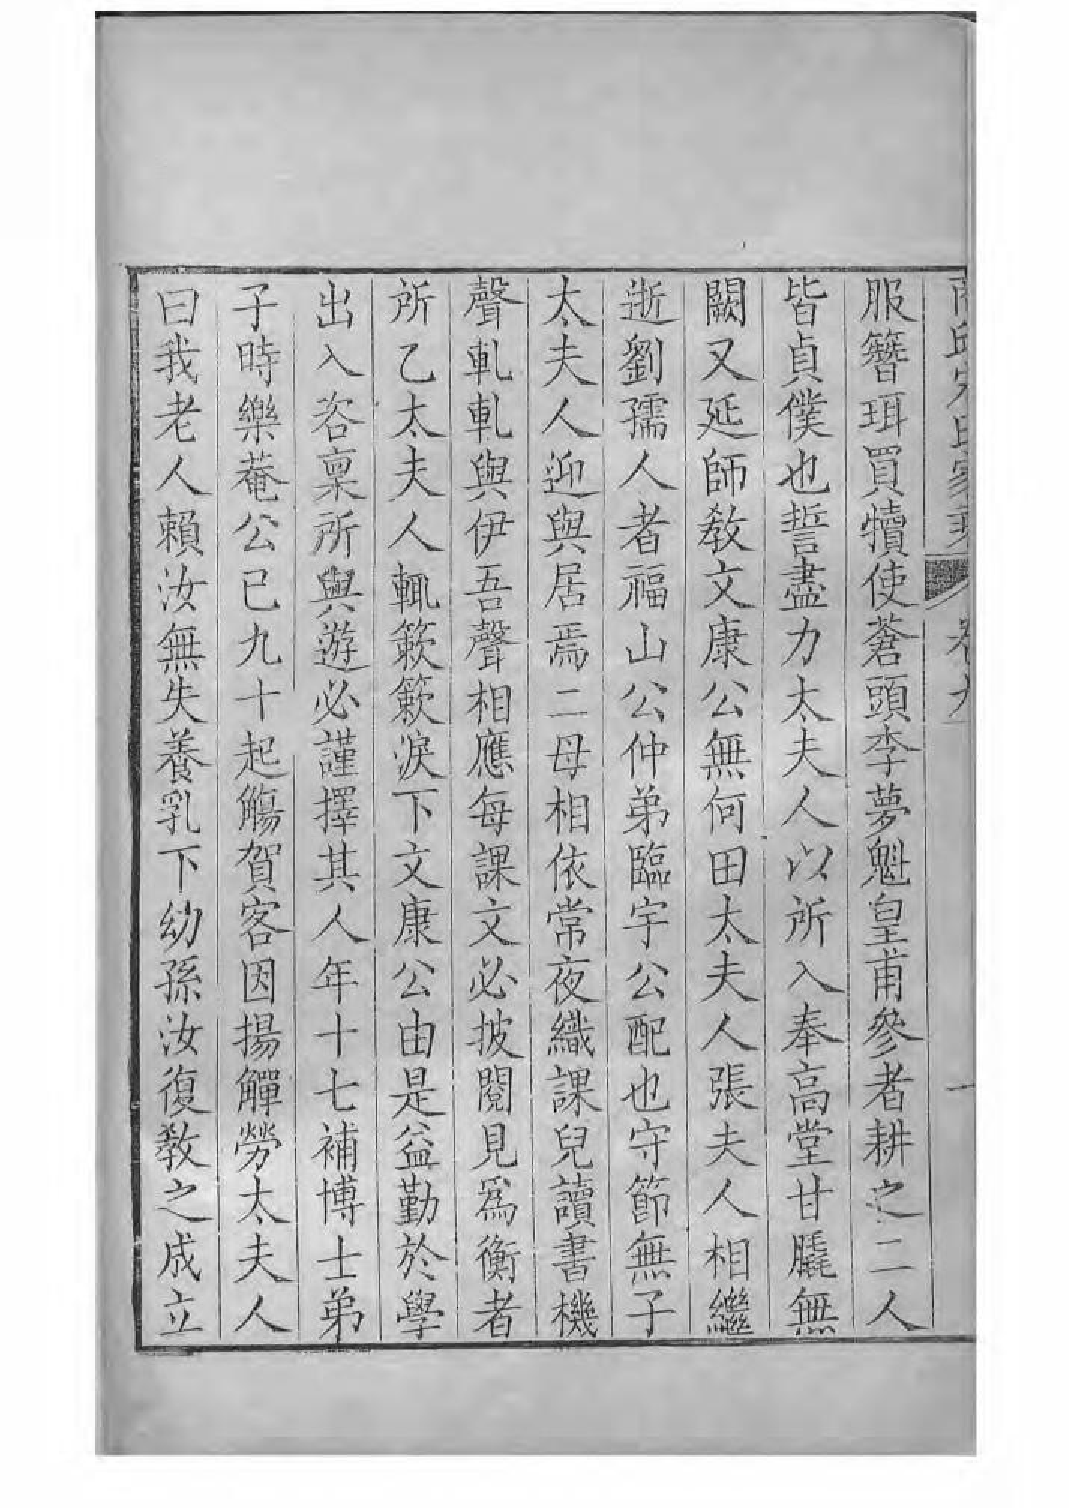 商邱宋氏家乘 卷九 一
服簪珥買犢使蒼頭李夢魁皇甫參者耕之二人
皆貞僕也誓盡力太夫人以所入奉高堂甘毳無
闕又延師敎文康公無何田太夫人張夫人相繼
逝劉孺人者福山公仲弟臨宇公配也守節無子
太夫人迎與居焉二母相依常夜織課兒讀書機
聲軋軋與伊吾聲相應每課文必披閱見爲衡者
所乙太夫人輒簌簌淚下文康公由是益勤於學
出入咨稟所與遊必謹擇其人年十七補博士弟
子時樂菴公已九十起觴賀客因揚觶勞太夫人
曰我老人賴汝無失養乳下幼孫汝復敎之成立